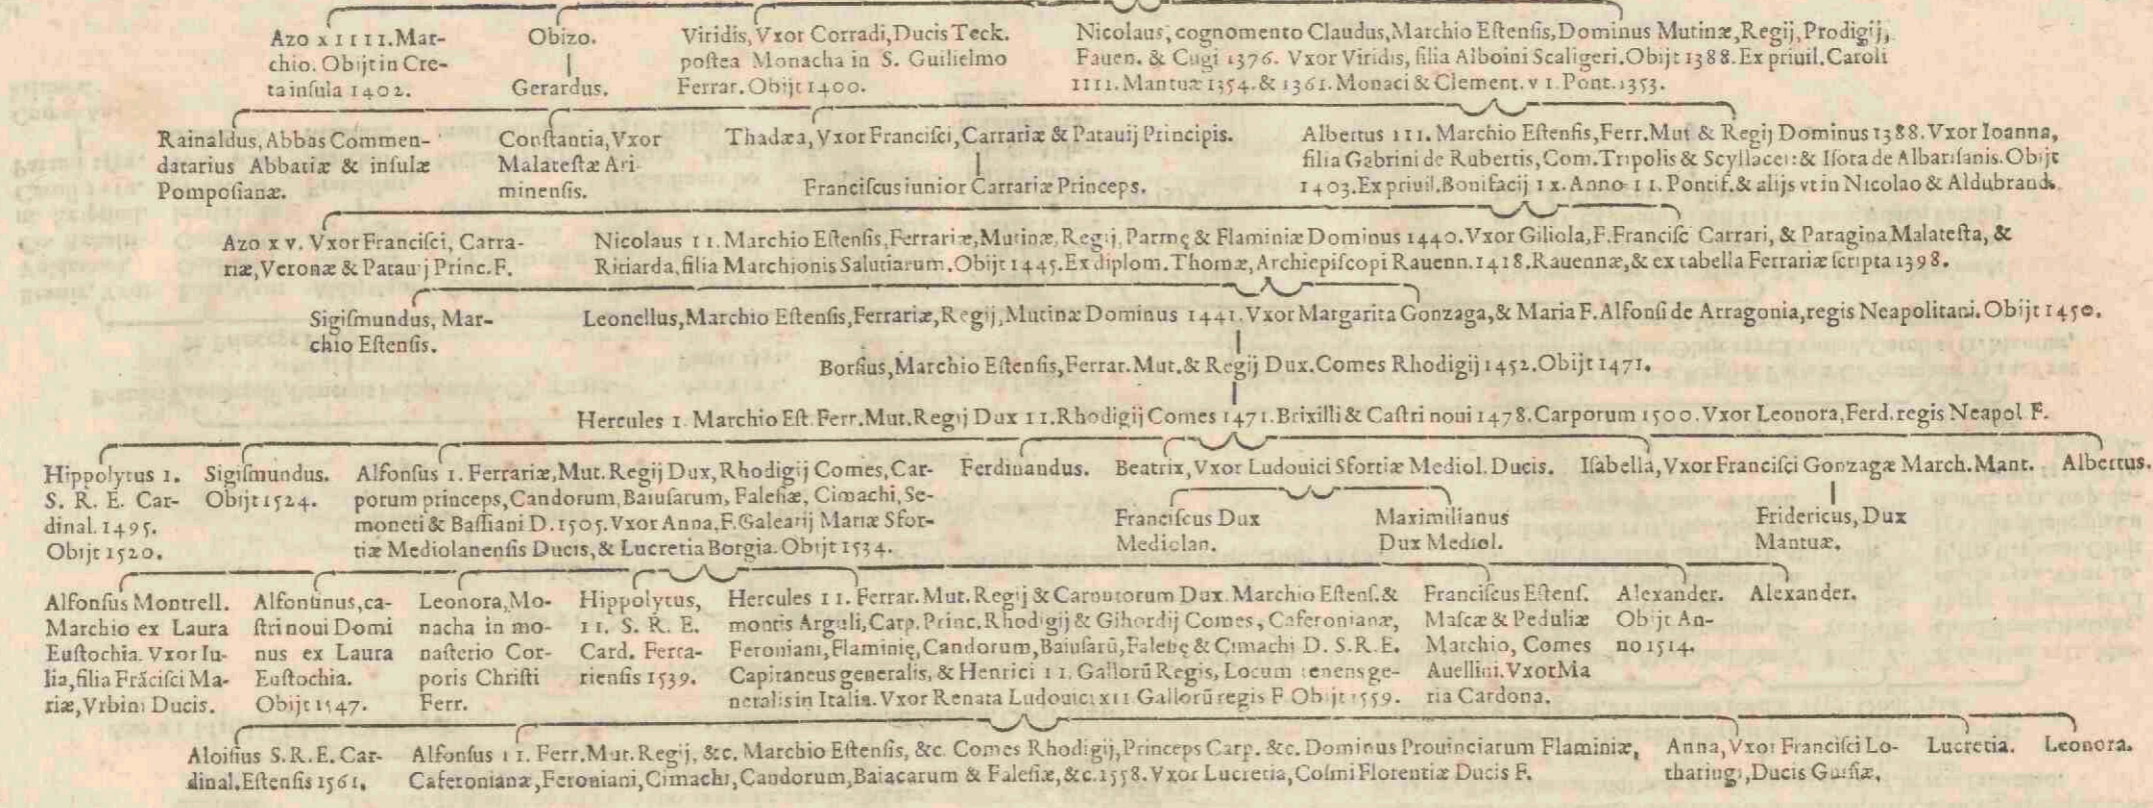 Azo XIIII. Mar-
chio. Obijt in Cre-
ta insula 1402.
Obizo.
Gerardus.
Viridis, Vxor Corradi, Ducis Teck.
postea Monacha in S. Guilielmo
Ferrar. Obijt 1400.
Nicolaus, cognomento Claudus, Marchio Estensis, Dominus Mutinæ, Regij, Prodigij,
Fauen. & Cugi 1376. Vxor Viridis, filia Alboini Scaligeri. Obijt 1388. Ex priuil. Caroli
IIII. Mantuæ 1354. & 1361. Monaci & Clement. VI. Pont. 1353.
Rainaldus, Abbas Commen-
datarius Abbatiæ & insulæ
Pomposianæ.
Constantia, Vxor
Malatestæ Ari-
minensis.
Thadæa, Vxor Francisci, Carrariæ & Patauij Principis.
Franciscus iunior Carrariæ Princeps.
Albertus III. Marchio Estensis, Ferr. Mut & Regij Dominus 1388. Vxor Ioanna,
filia Gabrini de Rubertis, Com. Tripolis & Scyllacei: & Isora de Albarisanis. Obijt
1403. Ex priuil. Bonifacij IX. Anno II. Pontif. & alijs vt in Nicolao & Aldubrand.
Azo XV. Vxor Francisci, Carra-
riæ, Veronæ & Patauij Princ. F.
Nicolaus II. Marchio Estensis, Ferrariæ, Mutinæ, Regij, Parmę & Flaminiæ Dominus 1440. Vxor Giliola, F. Francisc Carrari, & Paragina Malatesta, &
Riciarda, filia Marchionis Salutiarum. Obijt 1445. Ex diplom. Thomæ, Archiepiscopi Rauenn. 1418. Rauennæ, & ex tabella Ferrariæ scripta 1398.
Sigismundus, Mar-
chio Estensis.
Leonellus, Marchio Estensis, Ferrariæ, Regij, Mutinæ Dominus 1441. Vxor Margarita Gonzaga, & Maria F. Alfonsi de Arragonia, regis Neapolitani. Obijt 1450.
Borsius, Marchio Estensis, Ferrar. Mut. & Regij Dux. Comes Rhodigij 1452. Obijt 1471.
Hercules I. Marchio Est. Ferr. Mut. Regij Dux II. Rhodigij Comes 1471. Brixilli & Castri noui 1478. Carporum 1500. Vxor Leonora, Ferd. regis Neapol F.
Hippolytus I.
S. R. E. Car-
dinal. 1495.
Obijt 1520.
Sigismundus.
Obijt 1524.
Alfonsus I. Ferrariæ, Mut. Regij Dux, Rhodigij Comes, Car-
porum princeps, Candorum, Baiusarum, Falesiæ, Cimachi, Se-
moneti & Bassiani D. 1505. Vxor Anna, F. Galearij Mariæ Sfor-
tiæ Mediolanensis Ducis, & Lucretia Borgia. Obijt 1534.
Ferdinandus.
Beatrix, Vxor Ludouici Sfortiæ Mediol. Ducis.
Franciscus Dux
Mediolan.
Maximilianus
Dux Mediol.
Isabella, Vxor Francisci Gonzagæ March. Mant.
Fridericus, Dux
Mantuæ.
Albertus.
Alfonsus Montrell.
Marchio ex Laura
Eustochia. Vxor Iu-
lia, filia Frãcisci Ma-
riæ, Vrbini Ducis.
Alfonsinus, ca-
stri noui Domi
nus ex Laura
Eustochia.
Obijt 1547.
Leonora, Mo-
nacha in mo-
nasterio Cor-
poris Christi
Ferr.
Hippolytus,
II. S. R. E.
Card. Ferra-
riensis 1539.
Hercules II. Ferrar. Mut. Regij & Carnutorum Dux. Marchio Estens. &
montis Arguli, Carp. Princ. Rhodigij & Gihordij Comes, Caferonianæ,
Feroniani, Flaminię, Candorum, Baiusarũ, Falesię & Cimachi D. S. R. E.
Capitaneus generalis, & Henrici II. Gallorũ Regis, Locum tenens ge-
neralis in Italia. Vxor Renata Ludouici XII Gallorũ regis F. Obijt 1559.
Franciscus Estens.
Mascæ & Peduliæ
Marchio, Comes
Auellini. Vxor Ma
ria Cardona.
Alexander.
Obijt An-
no 1514.
Alexander.
Aloisius S. R. E. Car-
dinal. Estensis 1561.
Alfonsus II. Ferr. Mut. Regij, &c. Marchio Estensis, &c. Comes Rhodigij, Princeps Carp. &c. Dominus Prouinciarum Flaminiæ,
Caferonianæ, Feroniani, Cimachi, Candorum, Baiacarum & Falesiæ, &c. 1558. Vxor Lucretia, Cosmi Florentiæ Ducis F.
Anna, Vxor Francisci Lo-
tharingi, Ducis Guisiæ.
Lucretia.
Leonora.